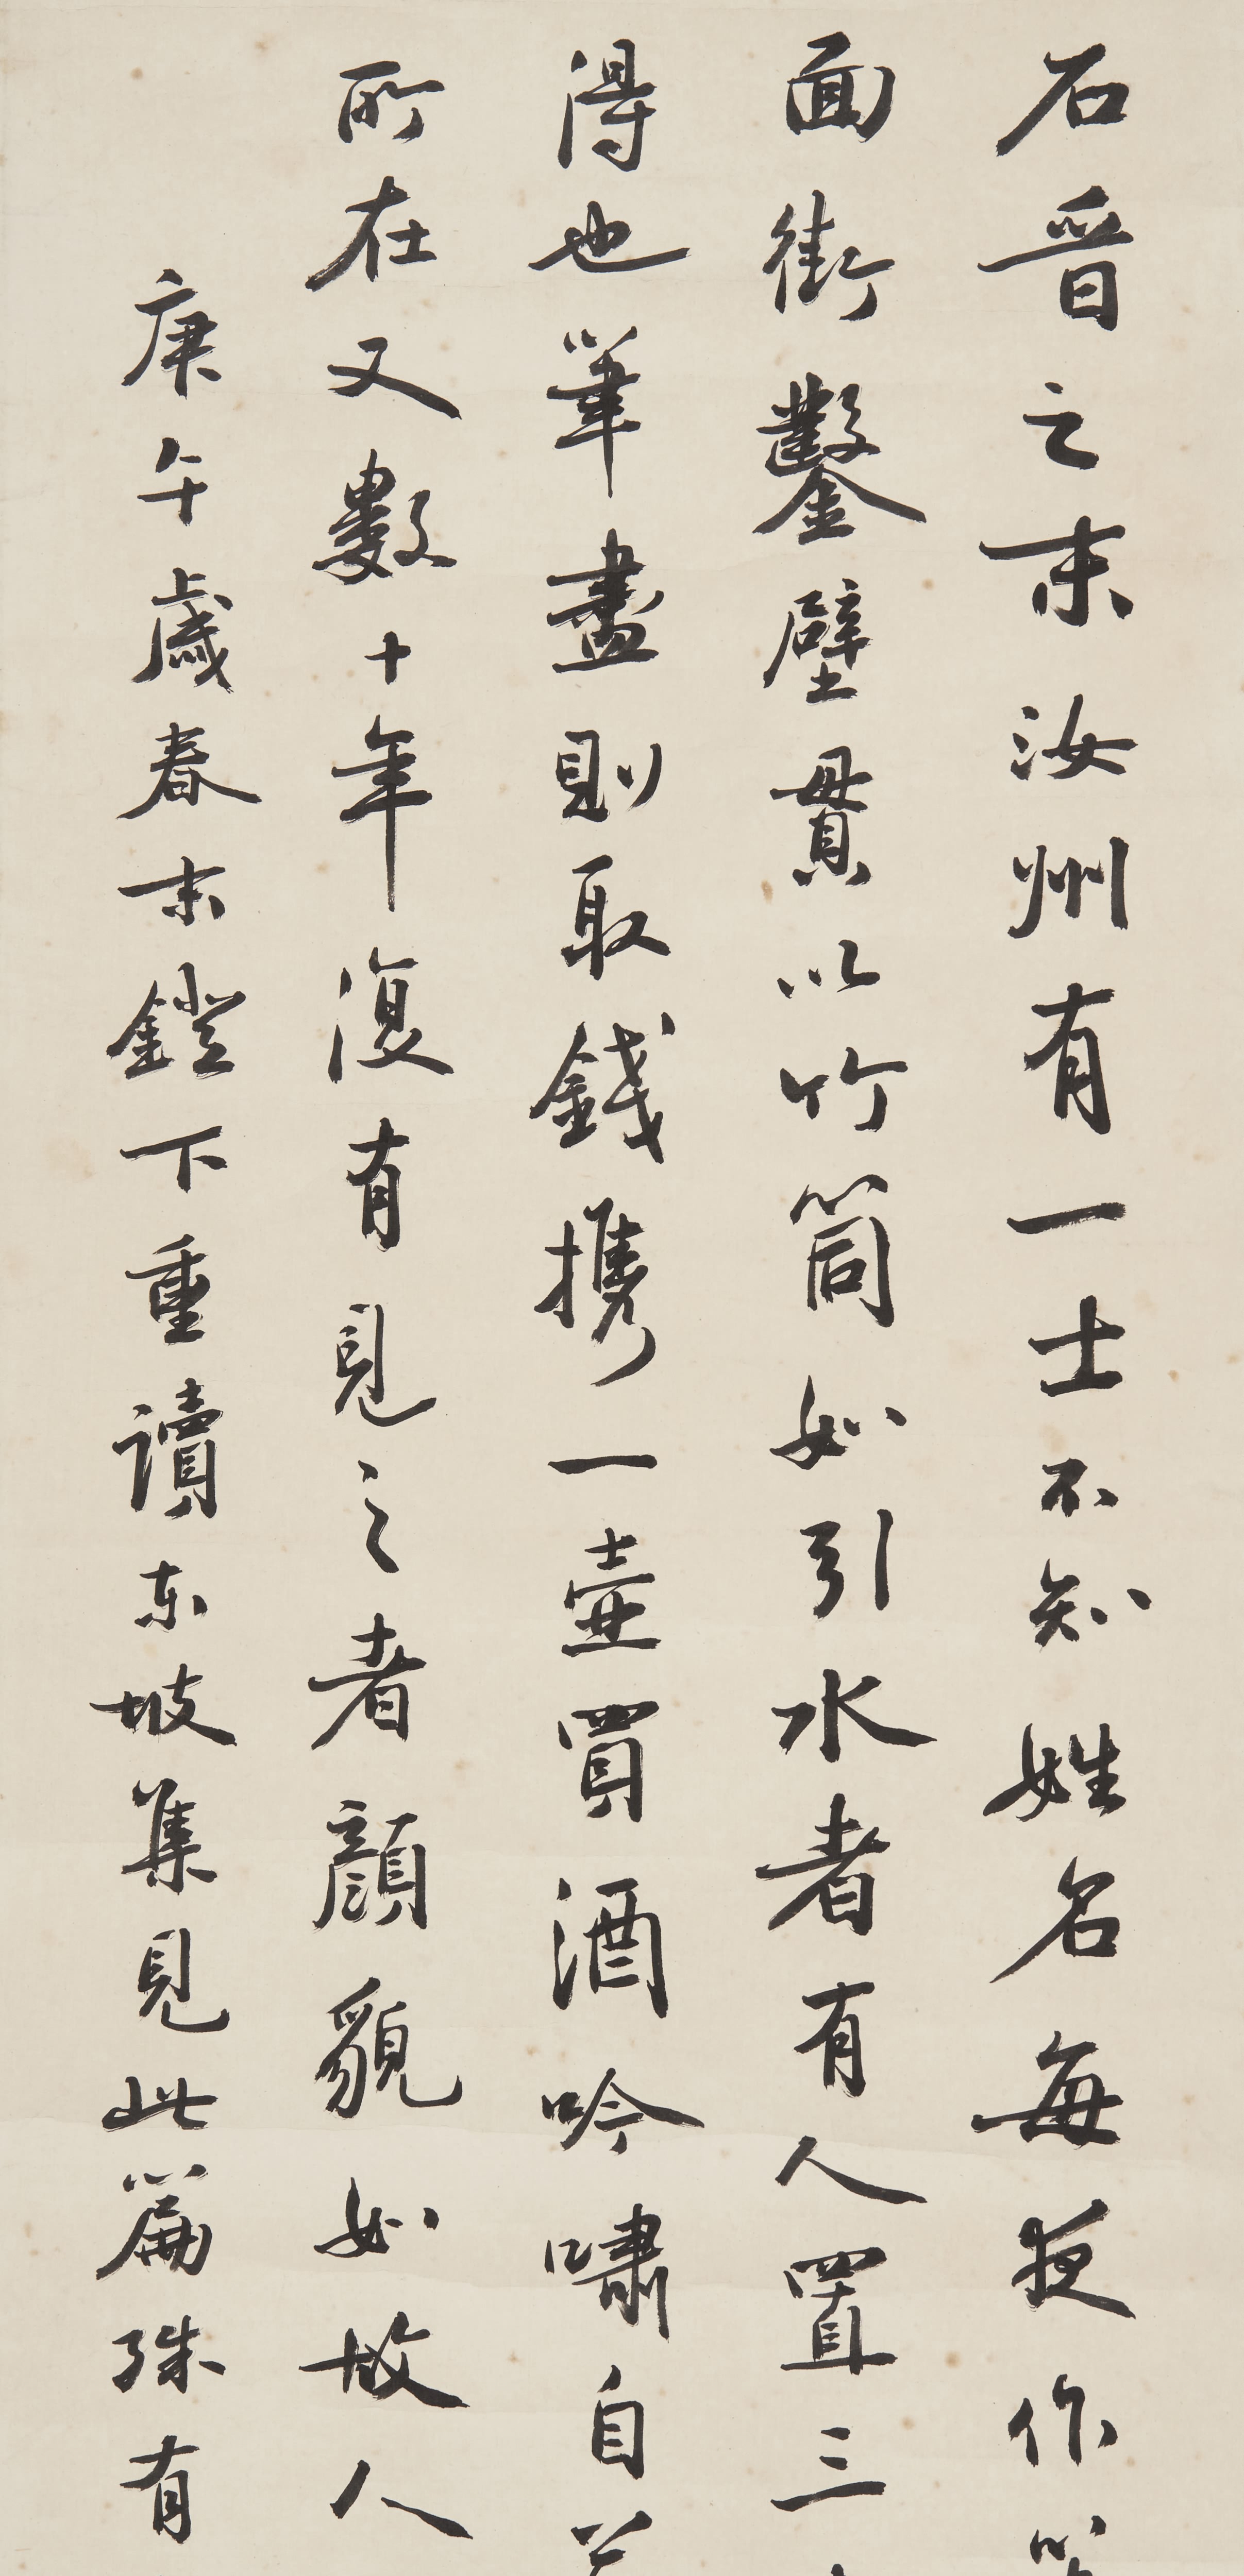 石晉之末汝州有一士不知姓名每夜作
面街鑿壁貫以竹筒如引水者有人置三
得也筆盡則取錢携一壺買酒吟嘯自
所在又數十年復有見之者顏貌如故人
庚午歲春末鐙下重讀東坡集見此篇殊有